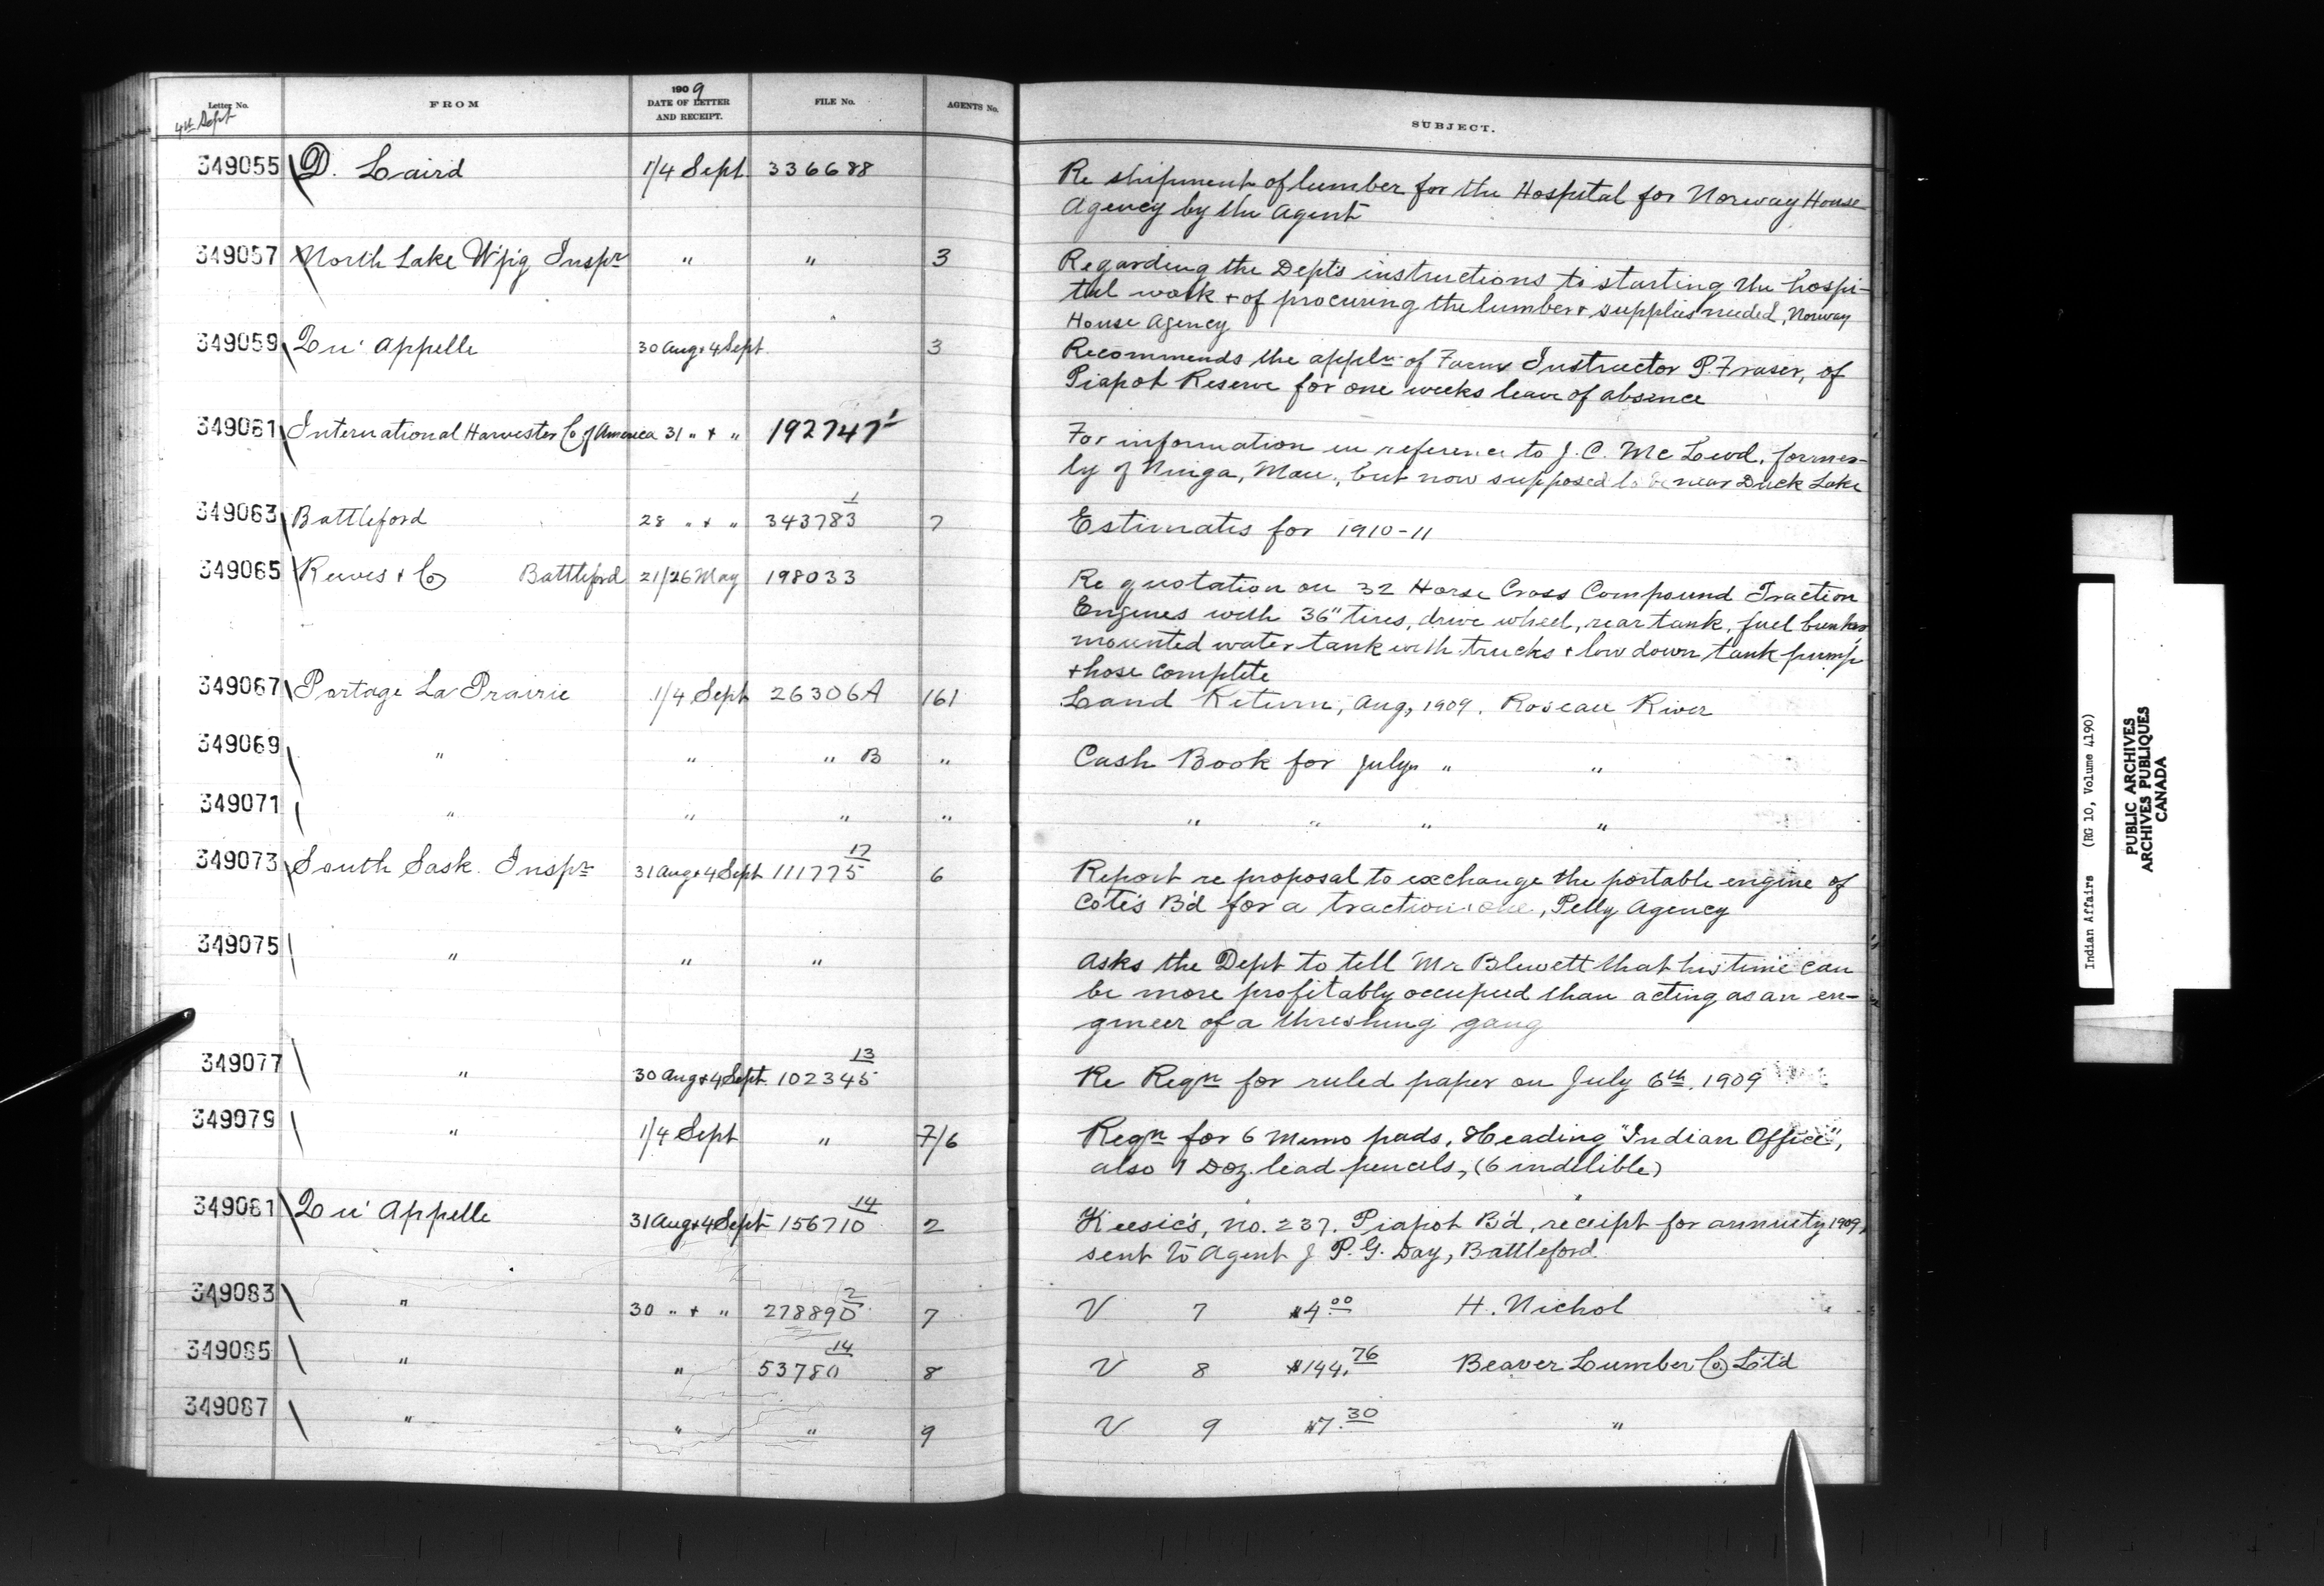 Letter No. FROM 1909 DATE OF LETTER AND RECEIPT. FILE No. AGENTS No. SUBJECT.
4th Sept
349055 D. Laird 1/4 Sept 336688 Re shipment of lumber for the Hospital for Norway House
Agency by the Agent
349057 North Lake W'p'g Inspr " " 3 Regarding the Dept's instructions to starting the hospi-
tal work + of procuring the lumber + supplies needed, Norway
House Agency
349059 Qu'Appelle 30 Aug + 4 Sept 3 Recommends the appln of Farm Instructor P. Fraser, of
Piapot Reserve for one weeks leave of absence
349061 International Harvester Co of America 31 " + " 192747 1 For information in reference to J. C. McLeod, former-
ly of Ninga, Man., but now supposed to be near Duck Lake
349063 Battleford 28 " + " 343783 1 7 Estimates for 1910-11
349065 Reeves + Co Battleford 21/26 May 198033 Re quotation on 32 Horse Cross Compound Traction
Engines with 36" tires, drive wheel, rear tank, fuel bunker
mounted water tank with trucks + low down tank pump
+ hose complete
349067 Portage La Prairie 1/4 Sept 26306A 161 Land Return, Aug, 1909. Roseau River
349069 " " " B " Cash Book for July " "
349071 " " " " " " " "
349073 South Sask. Inspr 31 Aug + 4 Sept 111775 17 6 Report re proposal to exchange the portable engine of
Cote's B'd for a traction one, Pelly Agency
349075 " " " Asks the Dept to tell Mr Blewett that his time can
be more profitably occupied than acting as an en-
gineer of a threshing gang
349077 " 30 Aug + 4 Sept 102345 13 Re Reqn for ruled paper on July 6th, 1909
349079 " 1/4 Sept " 7/6 Reqn for 6 memo pads, Heading "Indian Office",
also 1 Doz. lead pencils, (6 indelible)
349081 Qu'Appelle 31 Aug + 4 Sept 156710 14 2 Keesic's, No. 237, Piapot B'd, receipt for annuity 1909,
sent to Agent J. P. G. Day, Battleford
349083 " 30 " + " 278890 2 7 V 7 $4.00 H. Nichol
349085 " " 53780 14 8 V 8 $144.76 Beaver Lumber Co L't'd
349087 " " " 9 V 9 $7.30 "
Indian Affairs (RG 10, Volume 4190)
PUBLIC ARCHIVES
ARCHIVES PUBLIQUES
CANADA